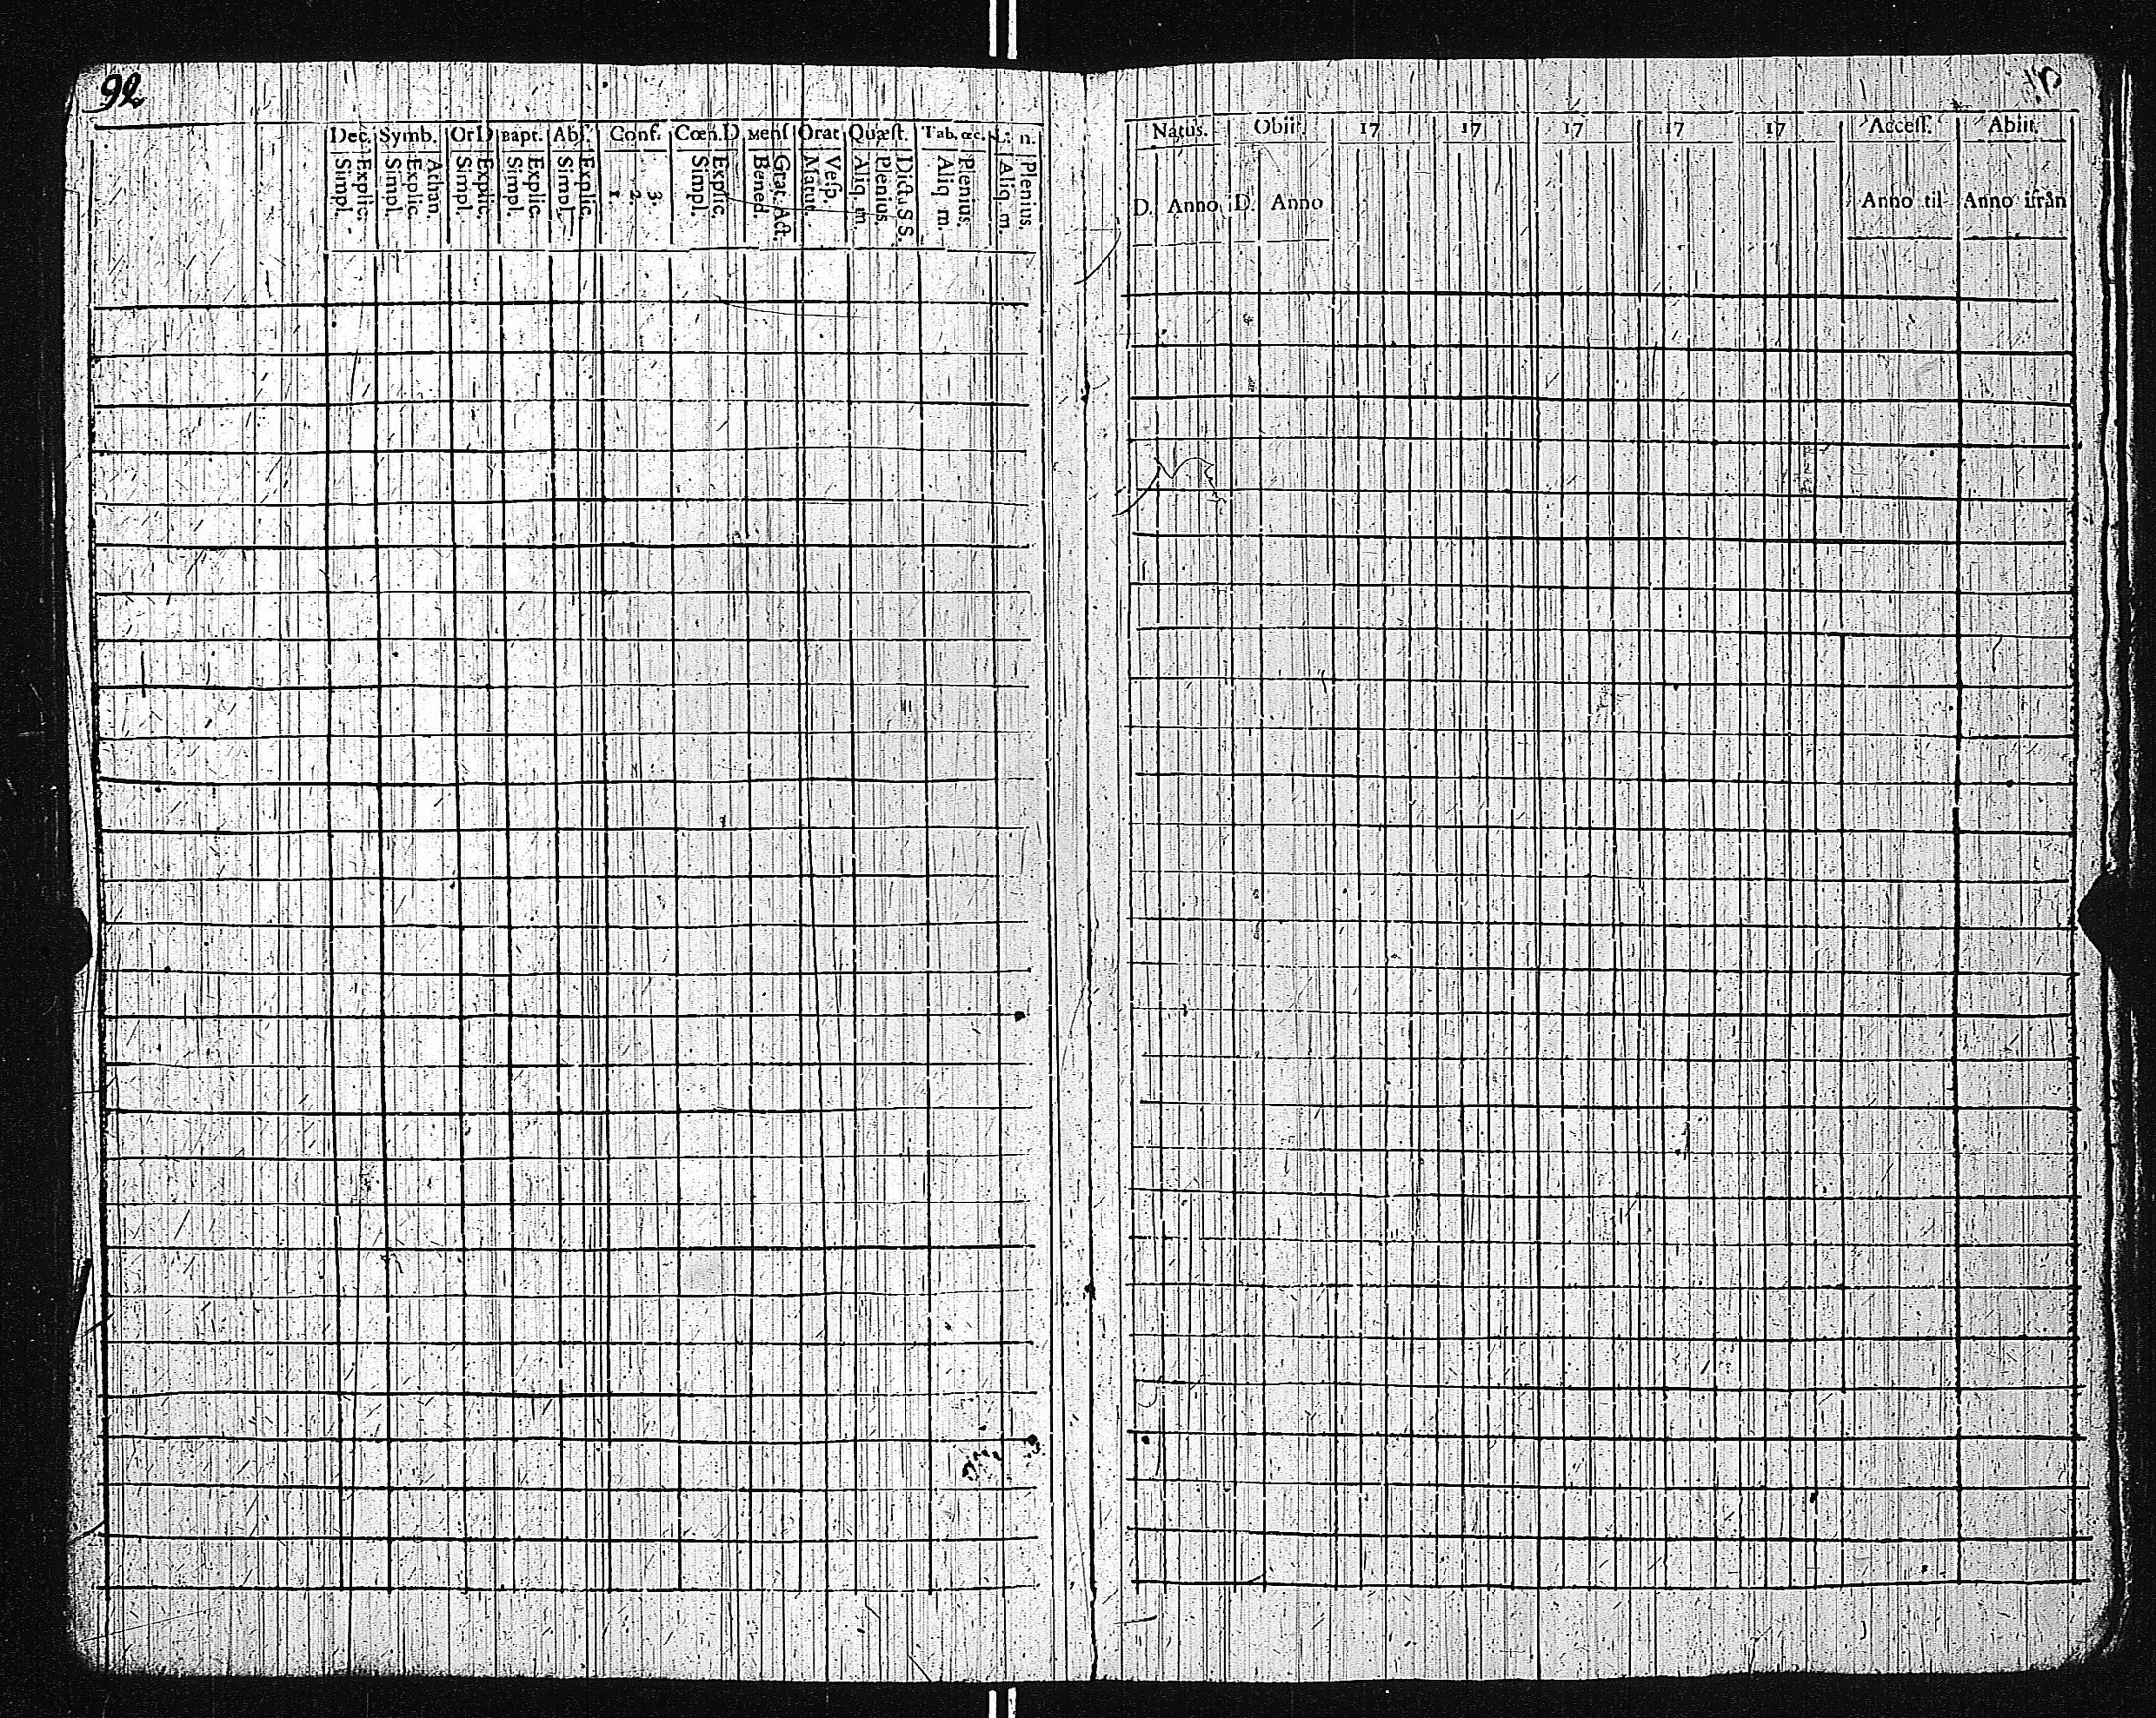 92
Dec. Symb. Or D Bapt. Abſ. Conf. Cœn. D Menſ Orat Quæſt. Tab. œc.
Simpl. Explic. Simpl. Explic. Athan. Simpl. Explic. Simpl. Explic. Simpl. Explic. 1. 2. 3. Simpl. Explic. Bened. Grat. Act. Matut. Veſp. Aliq. m. Plenius. Dicta S S. Aliq m. Plenius. Aliq. m. Plenius.
Natus. Obiit. 17 17 17 17 17 Acceſſ. Abiit.
D. Anno D. Anno Anno til Anno ifrån